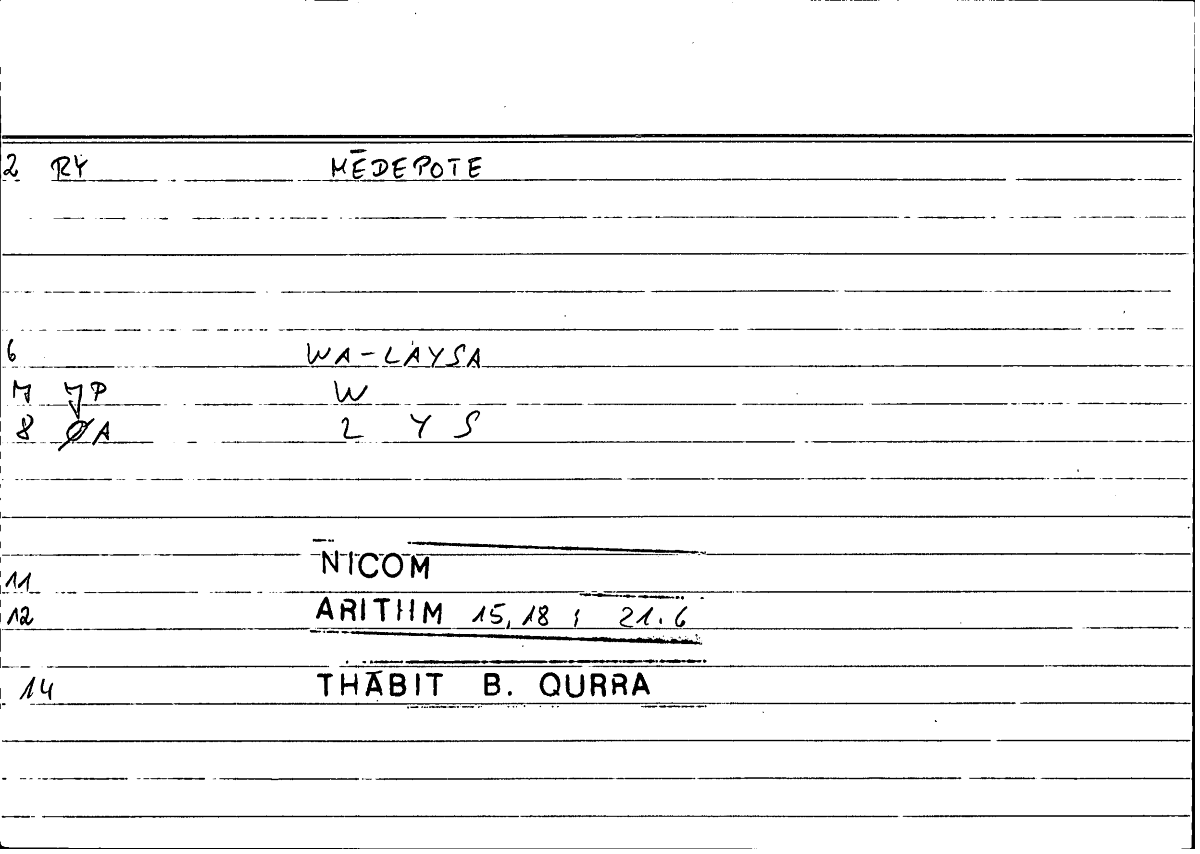 2 RY MĒDEPOTE
6 WA-LAYSA
7 P W
8 A 2 Y S
11 NICOM
12 ARITHM 15,18 ; 21.6
14 THĀBIT B. QURRA